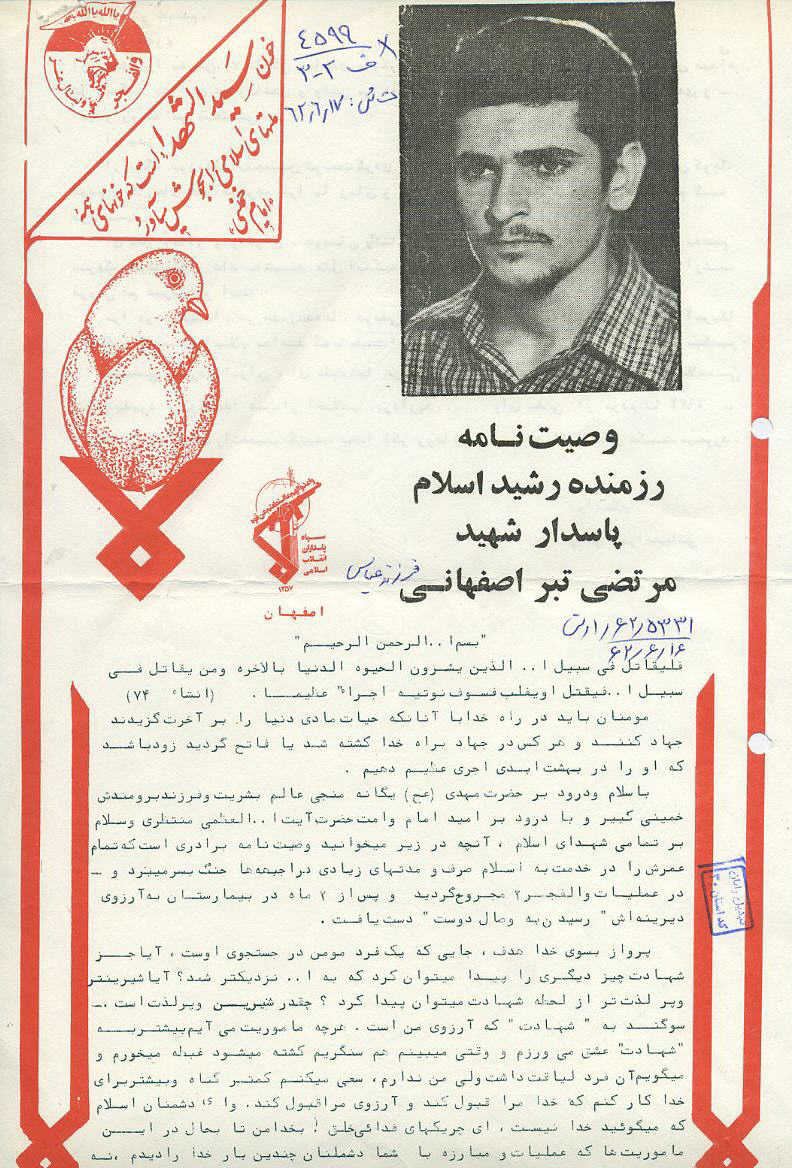 یاالله یاالله
والفجر
خون سید الشهدا است که خونهای همه
ملتهای اسلامی را بجوش میآورد
"امام خمینی"
۴۵۹۹
۳-۲ ف
۶۲/۶/۱۷
وصیت نامه
رزمنده رشید اسلام
پاسدار شهید
مرتضی تبر اصفهانی
فرزند عباس
سپاه
پاسداران
انقلاب
اسلامی
۱۳۵۷
اصفهان
۶۲/۵۳۳۱
۶۲/۶/۱۶
"بسم ا.. الرحمن الرحیم"
فلیقاتل فی سبیل ا.. الذین یشرون الحیوه الدنیا بالاخره ومن یقاتل فی
سبیل ا.. فیقتل اویغلب فسوف نوتیه اجرا" عظیما . (انتاء ۷۴)
مومنان باید در راه خدابا آنانکه حیات مادی دنیا را بر آخرت گزیدند
جهاد کنند و هر کس در جهاد براه خدا کشته شد یا فاتح گردید زودباشد
که او را در بهشت ابدی اجری عظیم دهیم .
باسلام ودرود بر حضرت مهدی (عج) یگانه منجی عالم بشریت وفرزندبرومندش
خمینی کبیر و با درود بر امید امام وامت حضرت آیت ا..العظمی منتظری وسلام
بر تمامی شهدای اسلام ، آنچه در زیر میخوانید وصیت نامه برادری است که تمام
عمرش را در خدمت به اسلام صرف و مدتهای زیادی درجبهه‌ها جنگ بسرمیبرد و ـ
در عملیات والفجر ۲ مجروح گردید و پس از ۲ ماه در بیمارستان به آرزوی
دیرینه‌اش " رسیدن به وصال دوست " دست یافت .
پرواز بسوی خدا هدف ، جایی که یک فرد مومن در جستجوی اوست ، آیا جز
شهادت چیز دیگری را پیدا میتوان کرد که به ا.. نزدیکتر شد؟ آیا شیرینتر
وپر لذت تر از لحظه شهادت میتوان پیدا کرد ؟ چقدر شیرین وپرلذت است ـ
سوگند به " شهادت " که آرزوی من است . هرچه ماموریت می آیم بیشتر به
"شهادت" عشق می ورزم و وقتی میبینم هم سنگریم کشته میشود غبطه میخورم و
میگویم آن فرد لیاقت داشت ولی من ندارم ، سعی میکنم کمتر گناه وبیشتر برای
خدا کار کنم که خدا مرا قبول کند و آرزوی مراقبول کند. وای دشمنان اسلام
که میگوئید خدا نیست ، ای چریکهای فدائی خلق ! بخدا من تا بحال در این
ماموریت ها که عملیات و مبارزه با شما دشملنان چندین بار خدا رادیدم ،نه